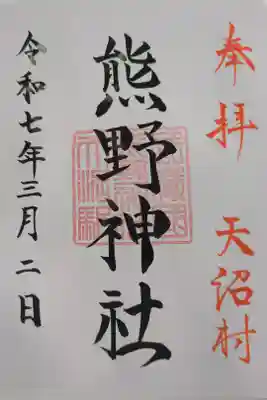 奉拝 天沼村
熊野神社
令和七年三月二日